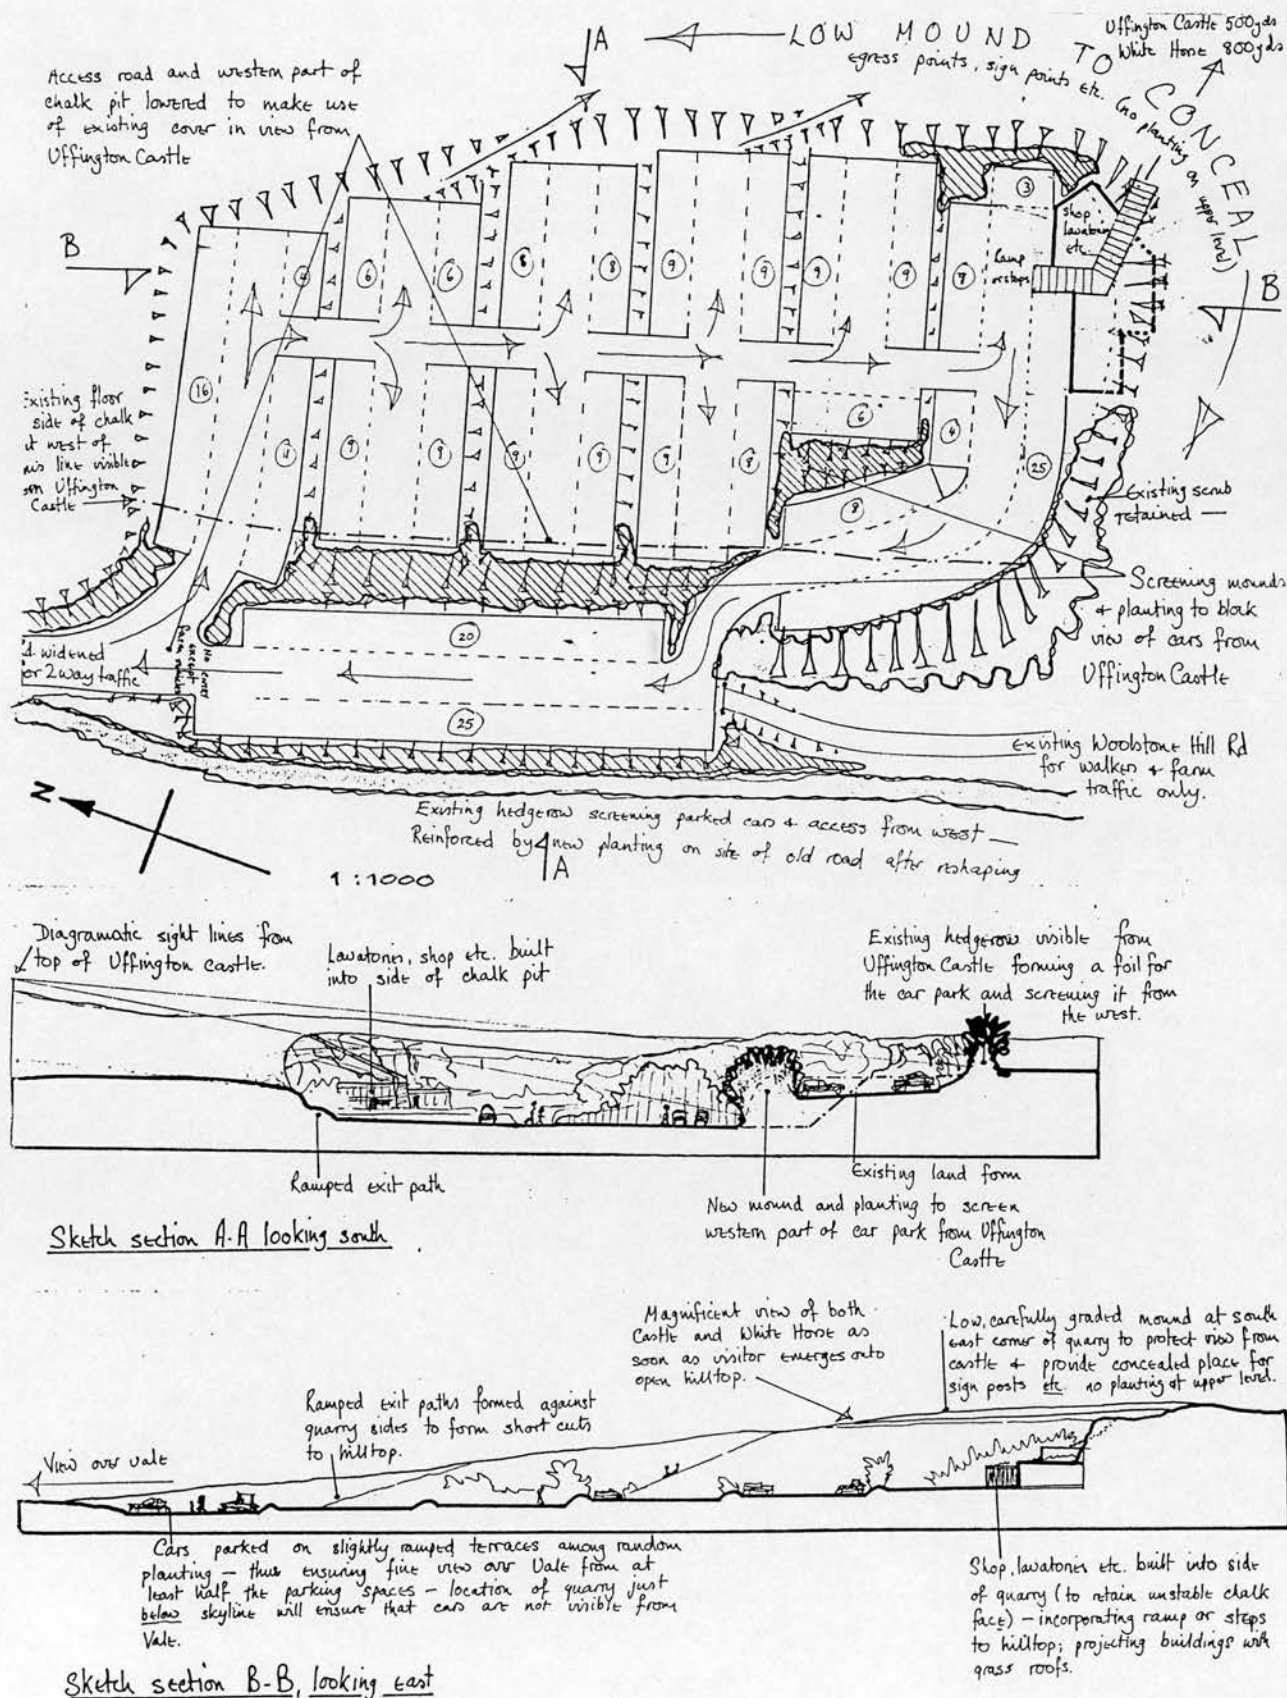 Access road and western part of
chalk pit lowered to make use
of existing cover in view from
Uffington Castle
A
LOW MOUND TO CONCEAL
egress points, sign points etc. (no planting on upper level)
Uffington Castle 500yds
White Horse 800yds
B
4
6
6
8
8
9
9
9
9
7
3
Shop
lavatories
etc.
Ramp
or steps
B
16
Existing floor
side of chalk
west of
line visible
Uffington
Castle
4
9
8
9
9
9
8
6
4
8
25
Existing scrub
retained
Screening mounds
& planting to block
view of cars from
Uffington Castle
20
25
d widened
or 2 way traffic
No
except
farm vehicles
Existing Woolstone Hill Rd
for walkers & farm
traffic only.
N
Existing hedgerow screening parked cars & access from west
Reinforced by new planting on site of old road after reshaping
1:1000
A
Diagramatic sight lines from
top of Uffington castle.
Lavatories, shop etc. built
into side of chalk pit
Existing hedgerow visible from
Uffington Castle forming a foil for
the car park and screening it from
the west.
Ramped exit path
Existing land form
New mound and planting to screen
western part of car park from Uffington
Castle
Sketch section A-A looking south
Magnificent view of both
Castle and White Horse as
soon as visitor emerges onto
open hilltop.
Low, carefully graded mound at south
east corner of quarry to protect view from
castle & provide concealed place for
sign posts etc. no planting at upper level.
Ramped exit paths formed against
quarry sides to form short cuts
to hilltop.
View over vale
Cars parked on slightly ramped terraces among random
planting – thus ensuring fine view over Vale from at
least half the parking spaces – location of quarry just
below skyline will ensure that cars are not visible from
Vale.
Shop, lavatories etc. built into side
of quarry (to retain unstable chalk
face) – incorporating ramp or steps
to hilltop; projecting buildings with
grass roofs.
Sketch section B-B, looking East